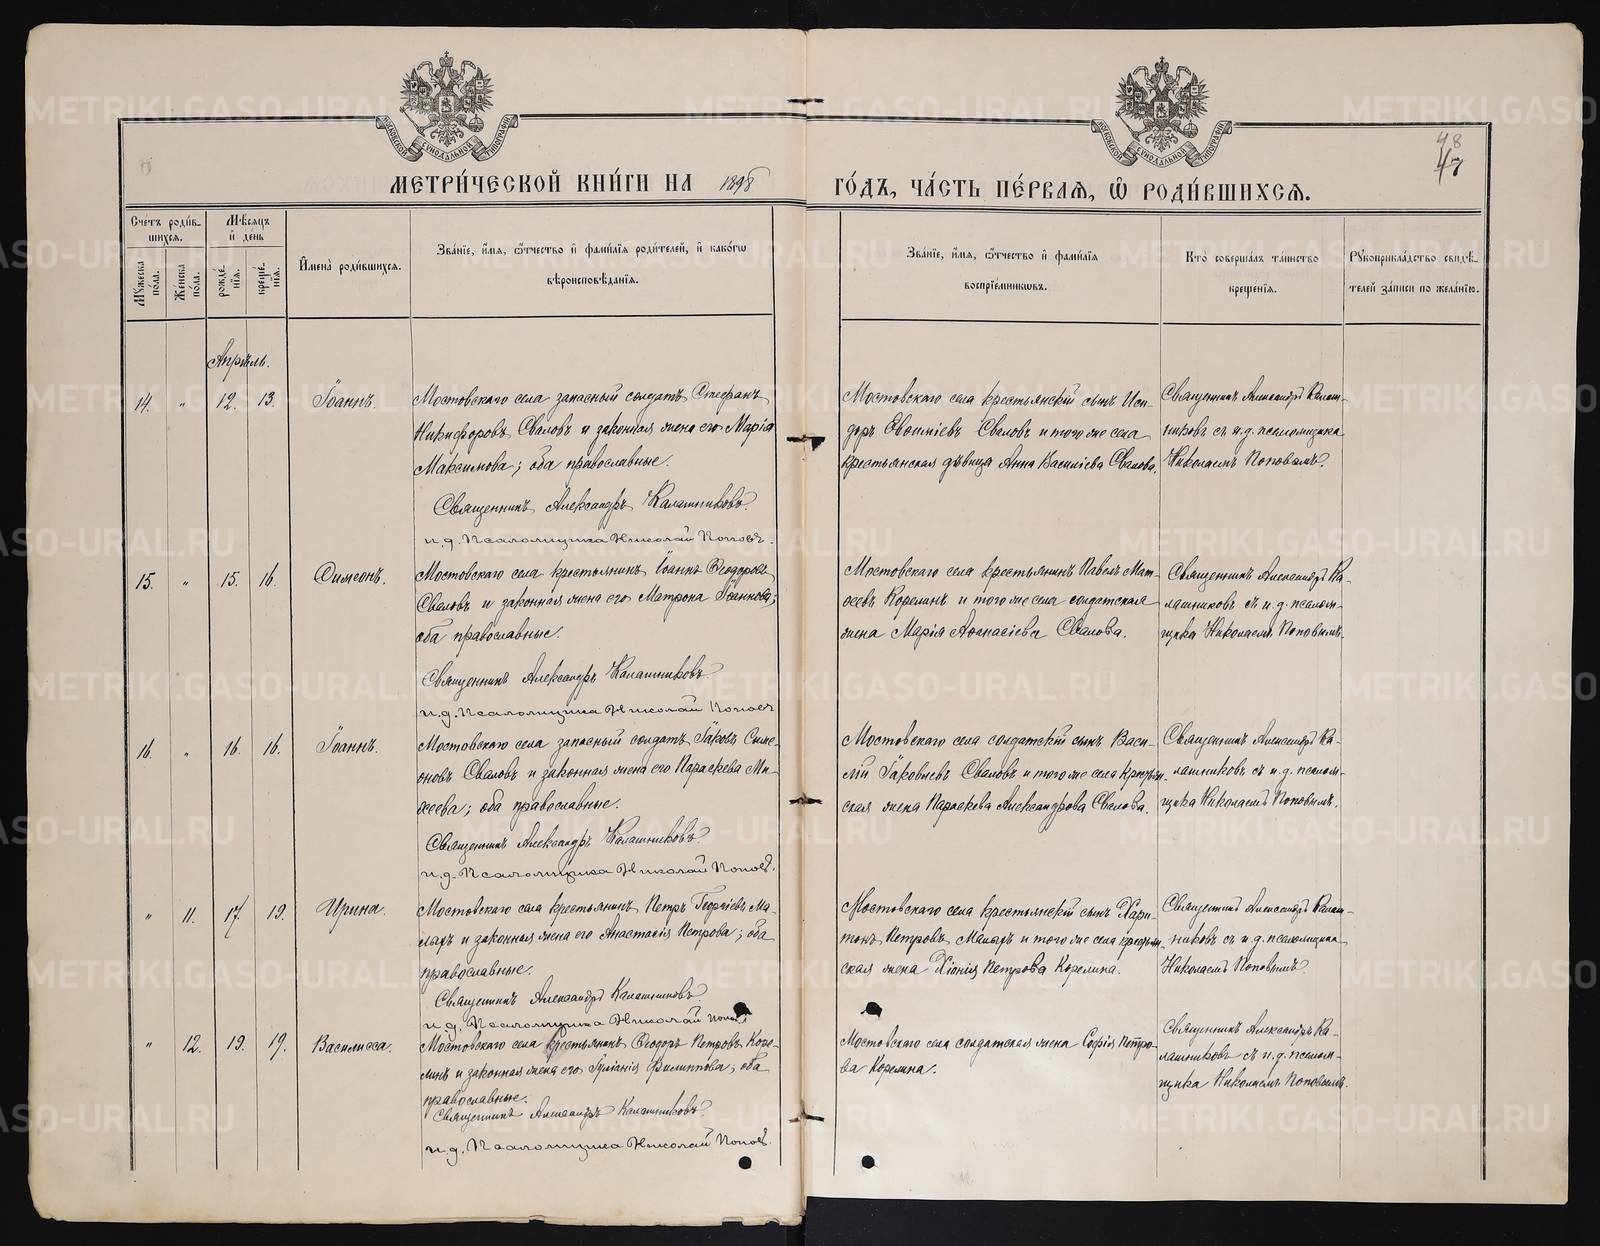 48
47
МЕТРИ́ЧЕСКОЙ КНИ́ГИ НА 1898
ГО́ДЪ, ЧА́СТЬ ПЕ́РВАЯ, Ѡ РОДИ́ВШИХСЯ.
Сче́тъ роди́в-
шихся.
Мѣ́сяцъ
и҆ де́нь
Му́жеска по́ла.
Же́нска по́ла.
рожде́нїя.
креще́нїя.
И҆мена̀ роди́вшихся.
Зва́нїе, и҆́мя, ѻ҆́тчество и҆ фами́лїя роди́телей, и҆ како́гѡ
вѣроисповѣ́данїя.
Зва́нїе, и҆́мя, ѻ҆́тчество и҆ фами́лїя
воспрїе́мникѡвъ.
Кто̀ соверша́лъ та́инство
креще́нїя.
Рꙋкоприкла́дство свидѣ́-
телей за́писи по жела́нїю.
Апрѣль.
14. „ 12. 13. Іоаннъ.
Мостовскаго села запасный солдатъ Стефанъ
Никифоровъ Сваловъ и законная жена его Марія
Максимова; оба православные.
Священникъ Александръ Калашниковъ.
и.д. Псаломщика Николай Поповъ.
Мостовскаго села крестьянскій сынъ Иси-
доръ Евфиміевъ Сваловъ и того же села
крестьянская дѣвица Анна Василіева Свалова.
Священникъ Александръ Калаш-
никовъ съ и.д. псаломщика
Николаемъ Поповымъ.
15. „ 15. 16. Симеонъ.
Мостовскаго села крестьянинъ Іоаннъ Ѳеодоровъ
Сваловъ и законная жена его Матрона Іоаннова;
оба православные.
Священникъ Александръ Калашниковъ
и.д. Псаломщика Николай Поповъ
Мостовскаго села крестьянинъ Павелъ Мат-
ѳеевъ Корелинъ и того же села солдатская
жена Марія Аѳанасіева Свалова.
Священникъ Александръ Ка-
лашниковъ съ и.д. псалом-
щика Николаемъ Поповымъ.
16. „ 16. 16. Іоаннъ.
Мостовскаго села запасный солдатъ Іаковъ Симе-
оновъ Сваловъ и законная жена его Параскева Ми-
хеева; оба православные.
Священникъ Александръ Калашниковъ.
и.д. Псаломщика Николай Поповъ.
Мостовскаго села солдатскій сынъ Васи-
лій Іаковлевъ Сваловъ и того же села крестьян-
ская жена Параскева Александрова Свалова.
Священникъ Александръ Ка-
лашниковъ съ и.д. псалом-
щика Николаемъ Поповымъ.
„ 11. 17. 19. Ирина.
Мостовскаго села крестьянинъ Петръ Георгіевъ Ма-
лыхъ и законная жена его Анастасія Петрова; оба
православные.
Священникъ Александръ Калашниковъ.
и.д. Псаломщика Николай Поповъ
Мостовскаго села крестьянскій сынъ Хари-
тонъ Петровъ Малыхъ и того же села крестьян-
ская жена Хіонія Петрова Корелина.
Священникъ Александръ Калаш-
никовъ съ и.д. псаломщика
Николаемъ Поповымъ.
„ 12. 19. 19. Василисса.
Мостовскаго села крестьянинъ Ѳеодоръ Петровъ Коре-
линъ и законная жена его Іуліанія Филиппова; оба
православные.
Священникъ Александръ Калашниковъ.
и.д. Псаломщика Николай Поповъ.
Мостовскаго села солдатская жена Софія Петро-
ва Корелина.
Священникъ Александръ Ка-
лашниковъ съ и.д. псалом-
щика Николаемъ Поповымъ.